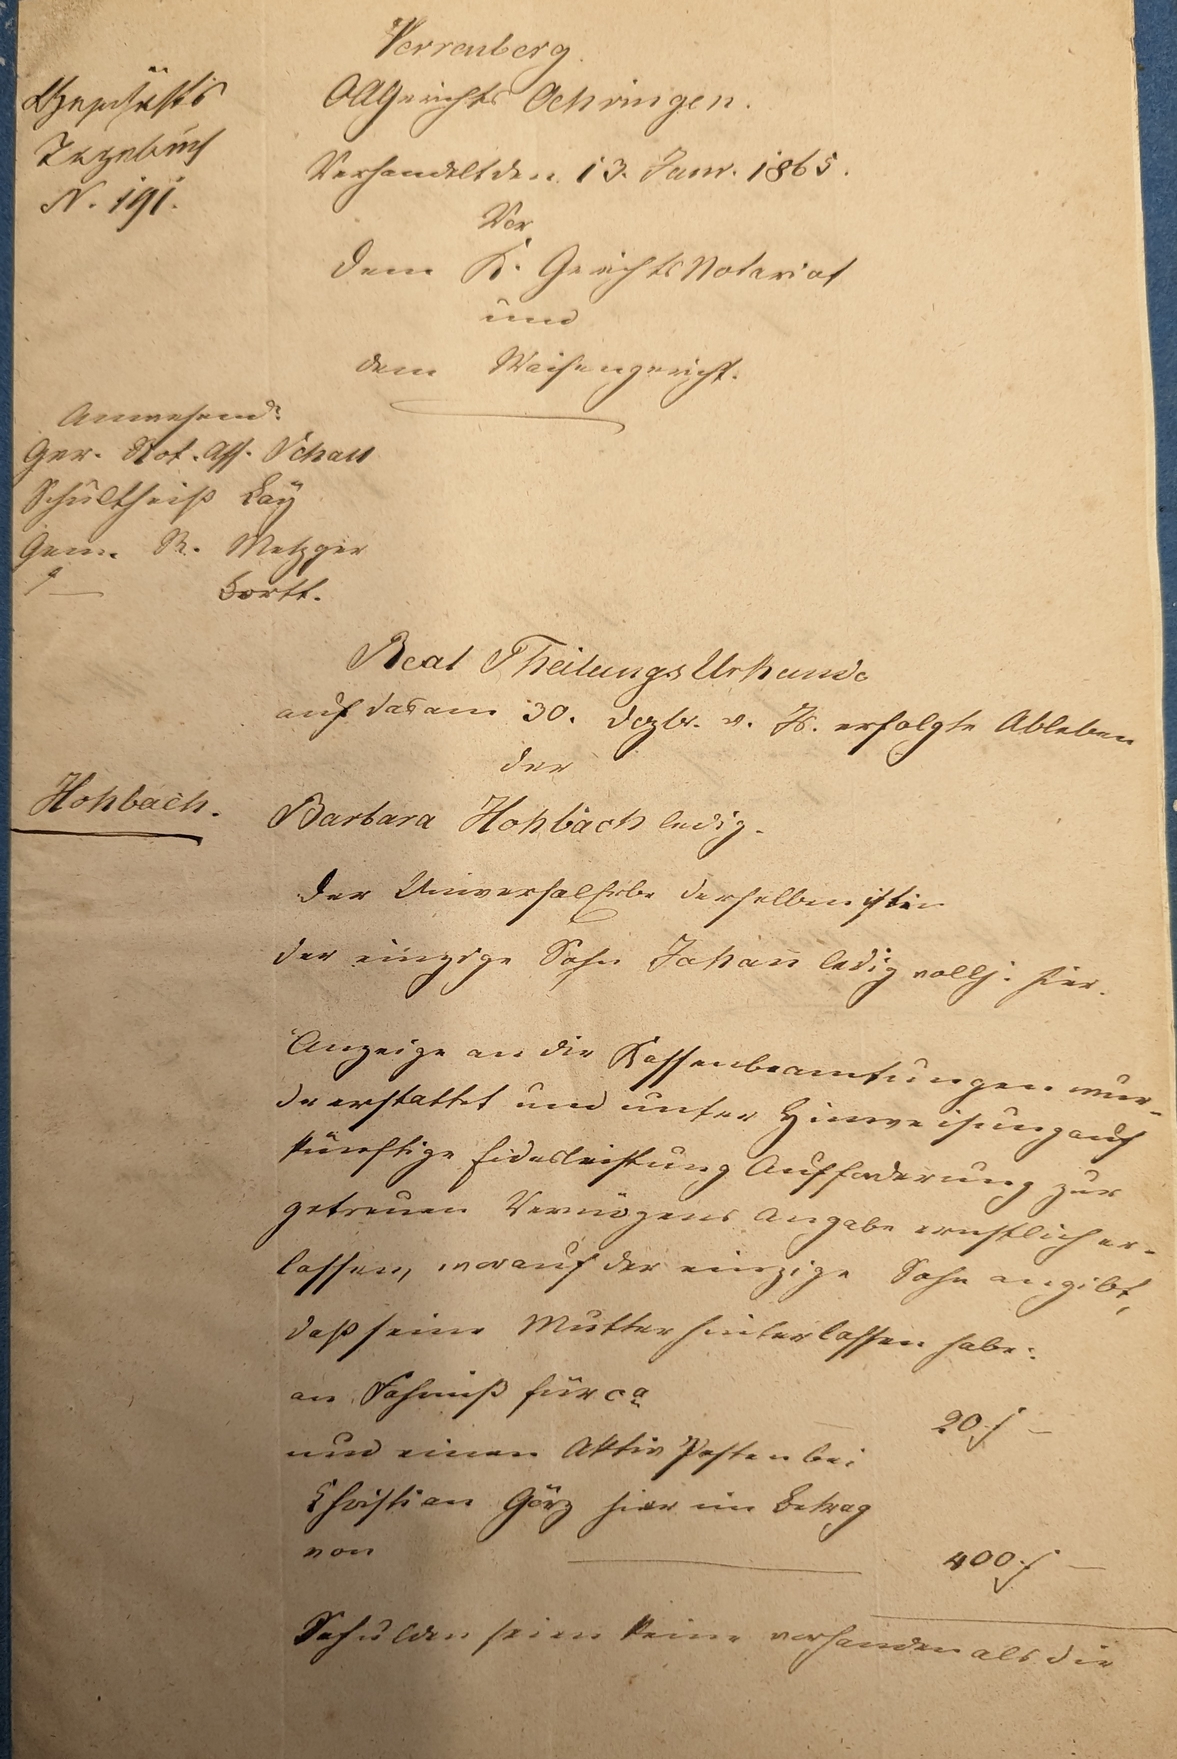 Verrenberg.
OAGerichts Oehringen.
Geschäfts
Tagebuch
N. 191.
Verhandelt den 13. Janr. 1865.
Vor
dem K. GerichtsNotariat
und
dem Waisengericht.
Anwesend:
Ger. Not. Ass. Schall
Schultheiß Lay
Gem. R. Metzger
Bortt.
Real TheilungsUrkunde
auf das am 30. Dezbr. v. Js. erfolgte Ableben
der
Hohbach.
Barbara Hohbach ledig.
Der Universalerbe derselben ist ein
der einzige Sohn Johann ledig vollj. hier.
Anzeige an die Kassenbeamtungen wur-
de erstattet und unter Hinweisung auf
künftige Eidesleistung Aufforderung zur
getreuen Vermögens Angabe ernstlich er-
lassen, worauf der einzige Sohn angibt,
daß seine Mutter hinterlassen habe:
an Fahrniß für ca
20 f —
und einen Aktiv Posten bei
Christian Görz hier im Betrag
von
400 f —
Schulden seien keine vorhanden als die